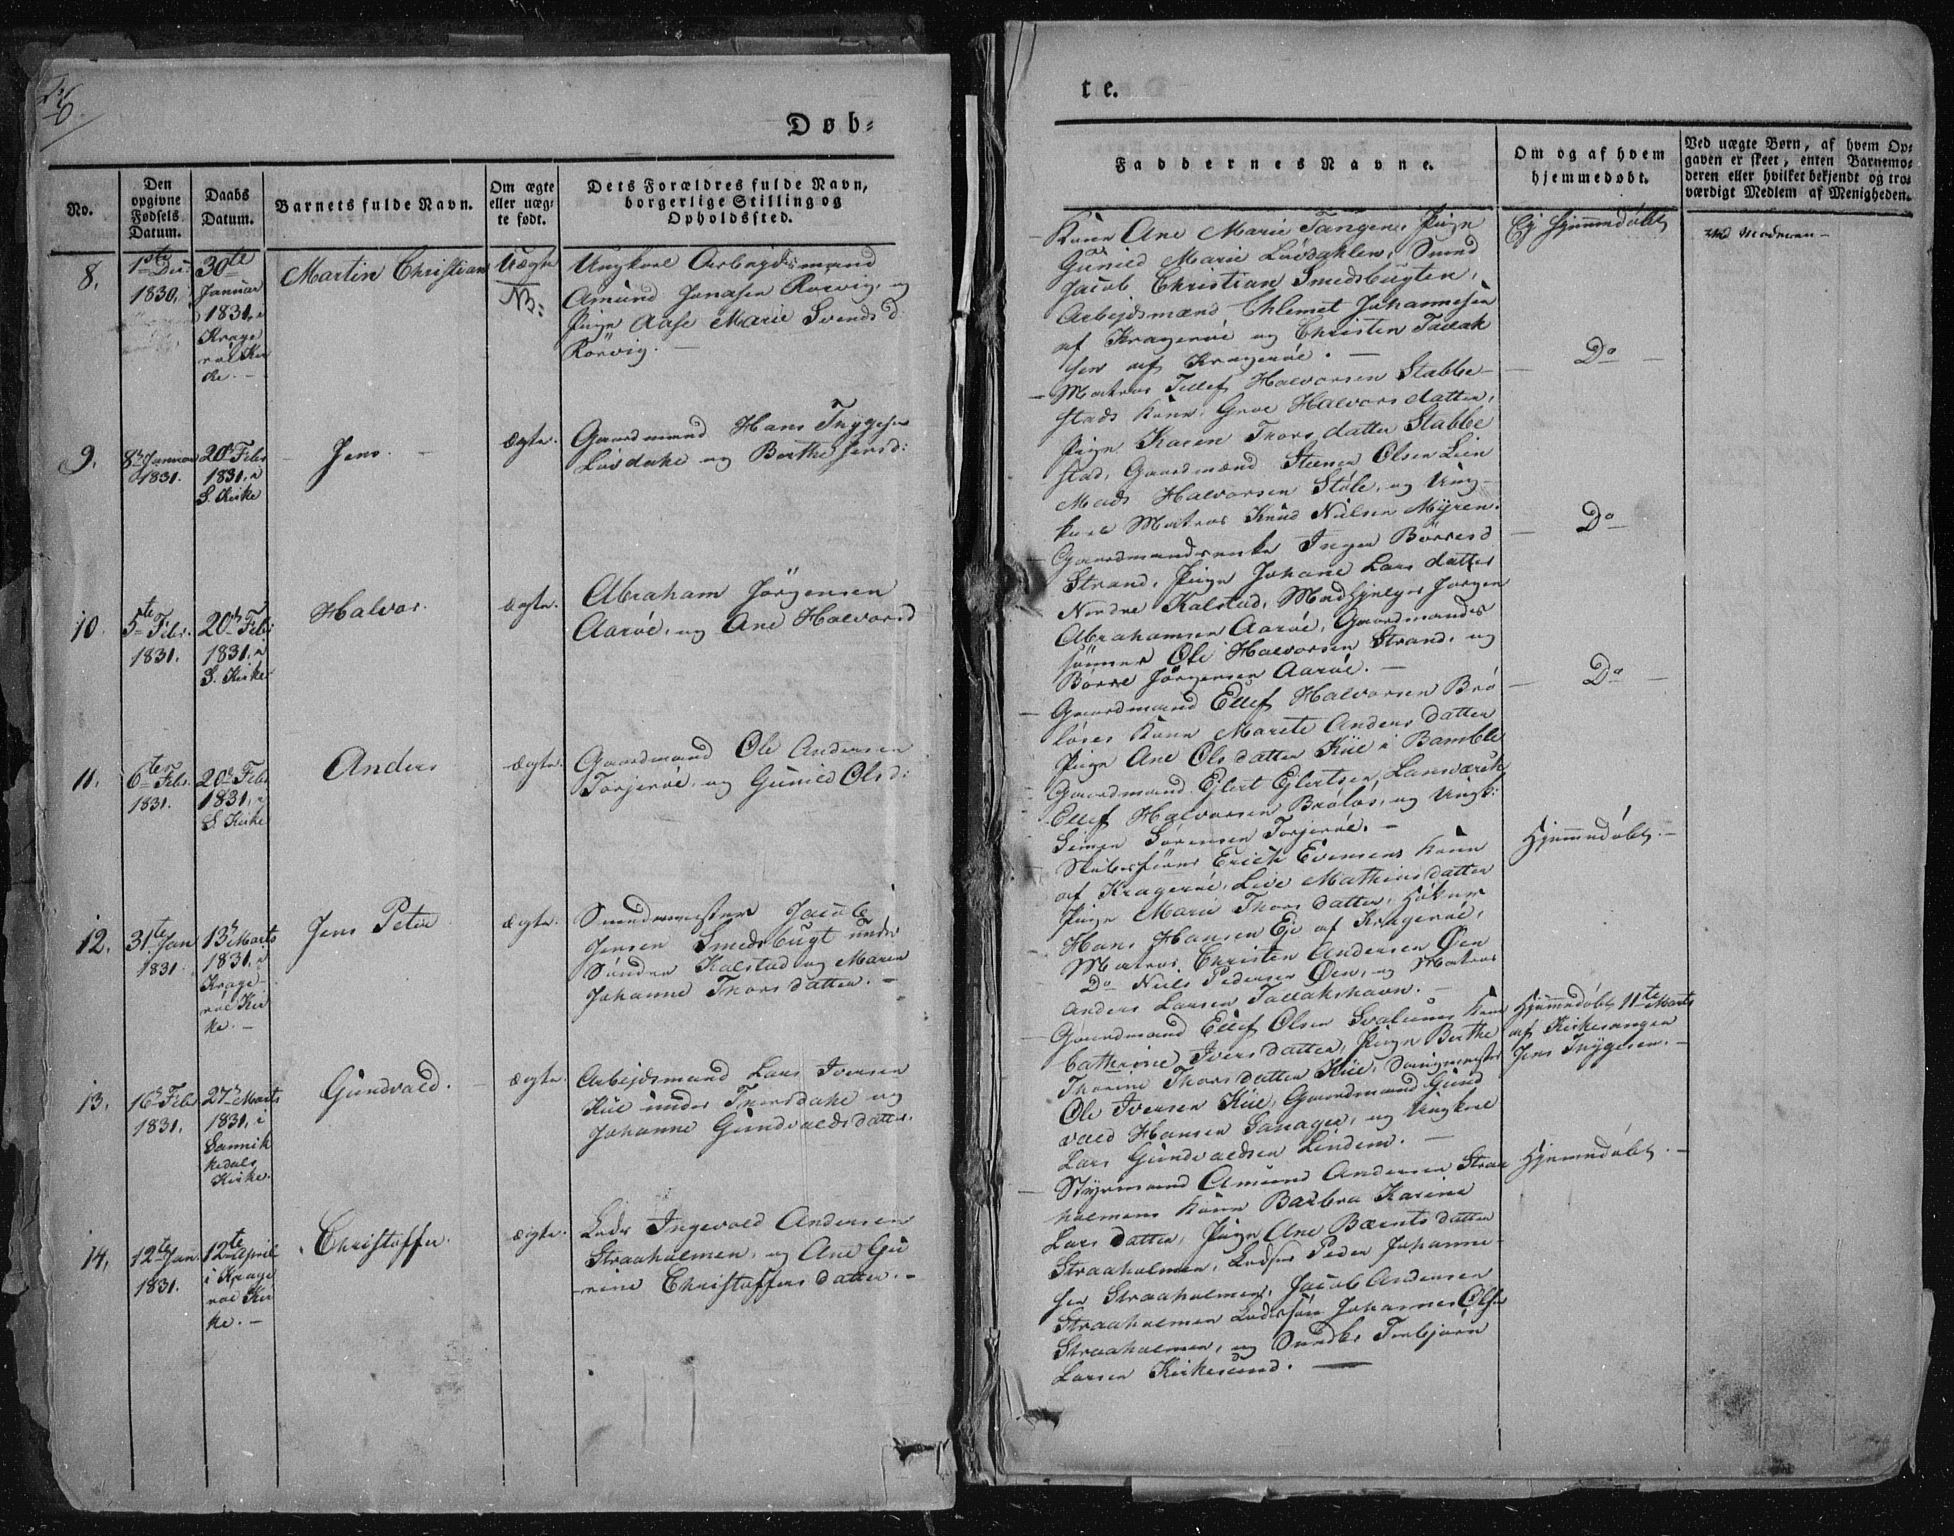 Døb-
No.
Den
opgivne
Fødsels
Datum.
Daabs
Datum.
Barnets fulde Navn.
Om ægte
eller uæg-
te født.
Dets Forældres fulde Navn,
borgerlige Stilling og
Opholdsted.
8.
1ste Dec:
1830.
30te
Januar
1831, i
Krage
röe Kir
cke. -
Martin Christian
Uægte
NB:
Ungkarl Arbejdsmand
Amund Jonasen Rörvig, og
Pige Aase Marie Svends d
Rörvig. -
9.
8de Januar
1831.
20de Febr
1831, i
S. Kirke
Jens. -
ægte.
Gaardmand Hans Trygesen
Lövdahe og Berthe Jensd:
10.
5te Febr.
1831.
20de Febr
1831, i
S. Kirke
Halvor.
ægte.
Abraham Jörgensen
Aaröe, og Ane Halvorsd
11.
6te Febr.
1831.
20de Febr
1831, i
S. Kirke
Anders
ægte.
Gaardmand Ole Andersen
Torjeröe, og Gunild Olsd:
12.
31te Jan
1831
13de Marts
1831, i
Krage-
röe Kir
ke. -
Jens Peter
ægte.
Smedmester Jacob
Jensen Smedsbugt under
Sönder Kalstad og Maren
Johanne Thorsdatter. -
13.
16de Febr
1831.
27de Marts
1831, i
Sannik
kedals
Kirke.
Gundvald.
ægte.
Arbejdsmand Lars Iversen
Kiie under Thorsdahe og
Johanne Gundvaldsdatter.
14.
12te Jan.
1831.
12te April
i Krage
röe Kir
ke. -
Christoffer.
ægte.
Lods Ingevald Andersen
Straaholmen, og Ane Gu
rine Christoffersdatter. -
te.
Faddernes Navne.
Om og af hvem
hjemmedøbt.
Ved uægte Børn, af hvem Op-
gaven er skeet, enten Barnemo-
deren eller hvilket bekjendt og tro-
værdigt Medlem af Menigheden.
Kone Ane Marie Tangen, Pige
Gunild Marie Lövdahlen, Smed
Jacob Christian Smedsbugten,
Arbejdsmænd, Thlemet Johannesen
af Krageröe og Christen Tallak
sen af Krageröe. -
Ej Hjemmedöbt
Matros Tellef Halvorsen Stabbe-
stads Kone, Groe Halvorsdatter,
Pige Karen Thorsdatter Stabbe
stad, Gaardmænd Steener Olsen Lien
Mads Halvorsen Stöle, og Ung-
karl Matros Knud Nielsen Myren.
Do
Gaardmandsenke Inger Börresd
Strand, Pige Johane Lars datter
Nordre Kalstad, Medhjelper Jörgen
Abrahamsen Aaröe, Gaardmands
sönner Ole Halvorsen Strand, og
Börre Jörgensen Aaröe. -
Do
Gaardmand Ellef Halvorsen Brö
löses Kone Marete Andersdatter
Pige Ane Olsdatter Kiie i Bamble
Gaardmænd Ejlert Ejlertsen
Ellef Halvorsen Brölös, og Ungk:
Simen Sörensen Torjeröe. -
Do
Erich Evensens Kone
af Krageröe, Live Mathiesdatter
Pige Marie Thorsdatter, Höker
Hans Hansen Eje af Krageröe,
Matros Christen Andersen Öen
Do Niels Pedersen Öen, og Matros
Anders Larsen Tallakshavn. -
Hjemmedöbt. -
Gaardmand Ellef Olsen Kone
Cathrine Iversdatter, Pige Berthe
Thorine Thorsdatter Kiie,
Ole Iversen Kiie, Gaardmand Gund
vald Hansen Sanager, og Ungkarl
Lars Gundvaldsen Lindem. -
Hjemmedöbt 11te Marts
af Kirkesanger
Jens Trygesen. -
Styrmand Amund Andersen Straa
holmens Kone Barbra Karine
Larsdatter, Pige Ane Bærntsdatter
Straaholmen, Lodser Peder Johanne-
sen Straaholmen, Jacob Andersen
Straaholmen Lodssön Johannes Olsen
Straaholmen, og Torbjörn
Larsen Kirkesund. -
Hjemmedöbt. -